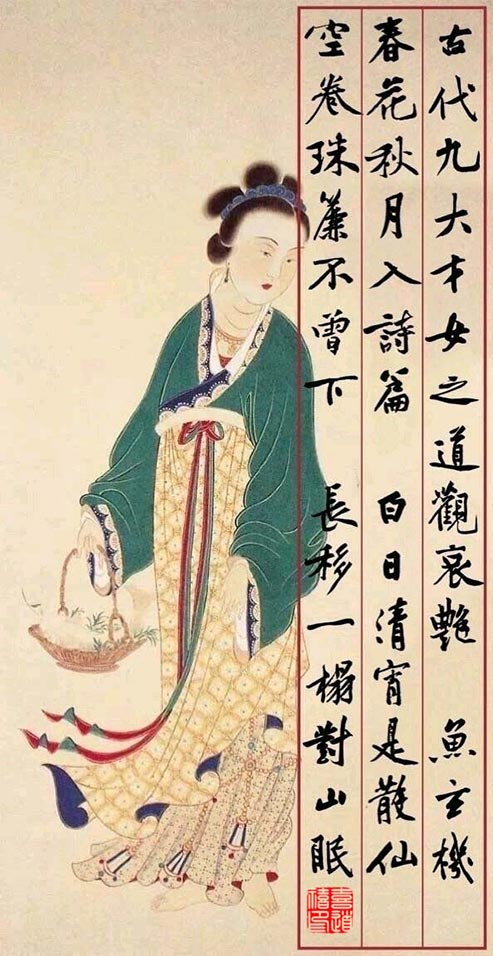 古代九大才女之道觀哀艷 魚玄機
春花秋月入詩篇 白日清宵是散仙
空卷珠簾不曾下 長移一榻對山眠